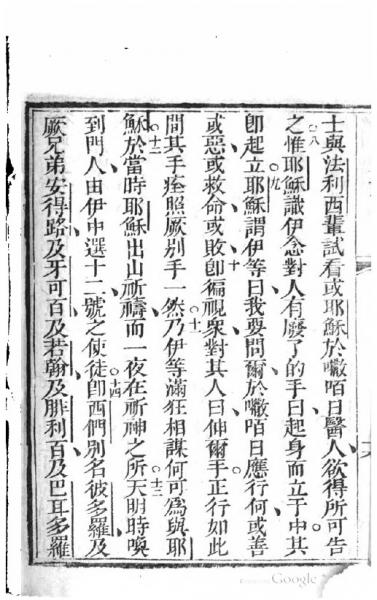 士與法利西輩試看或耶穌於囐咟日醫人欲得所可告
之惟耶穌識伊念對人有廢了的手曰起身而立于中其
卽起立耶穌謂伊等曰我要問爾於囐咟日應行何或善
或惡或救命或敗卽徧視衆對其人曰伸爾手正行如此
間其手痊照厥别手一然乃伊等滿狂相謀何可爲與耶
穌於當時耶穌出山祈禱而一夜在祈神之所天明時喚
到門人由伊中選十二號之使徒卽西們别名彼多羅及
厥兄弟安得路及牙可百及若翰及腓利百及巴耳多羅
八
九
十
十一
十二
十三
十四
Google